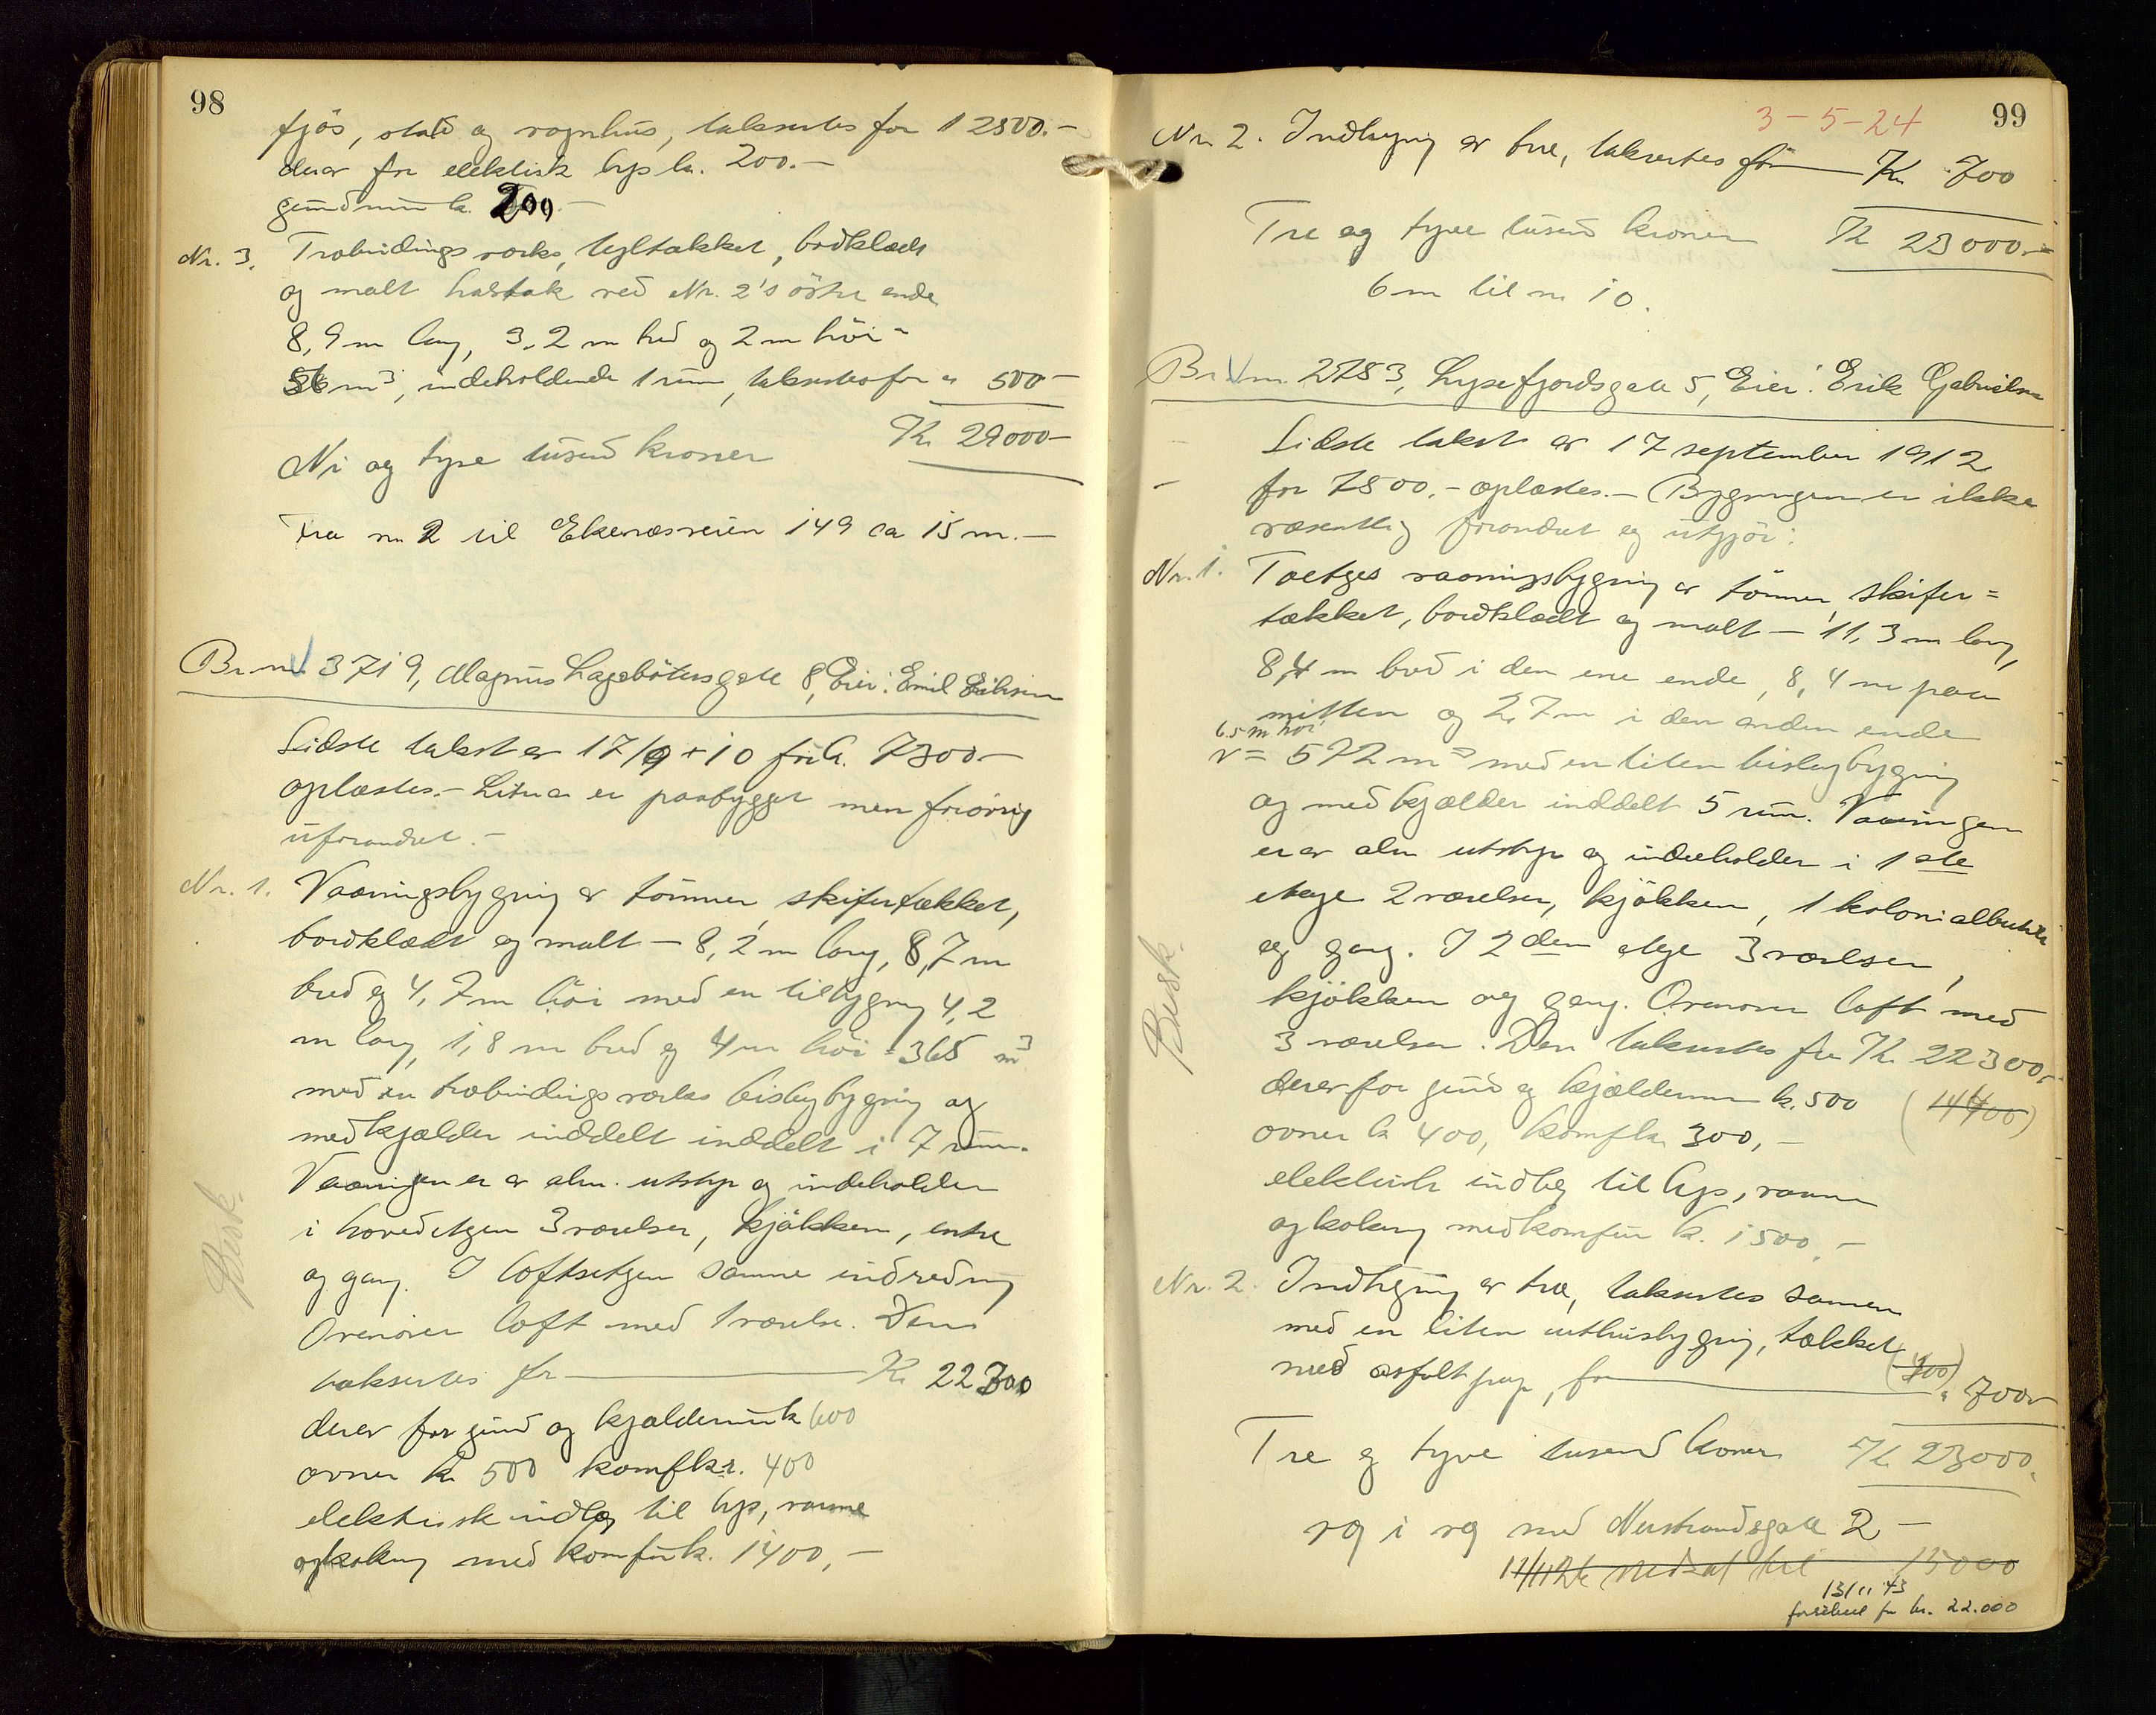 98
fjös, stald og vognhus, takseres for 12800.-
derav for elektrisk lys kr. 200.-
grundmur kr. 200.-
Nr. 3. Træbindingsverks, tegltækket, bordklædt
og malt halvtak ved Nr. 2's östre ende
8,9 m lang, 3,2 m bred og 2 m höi =
56 m³, indeholdende 1 rum, takseres for " 500-
Kr. 29000-
Ni og tyve tusend kroner
Fra nr. 2 til Ekenæsveien 149 ca 15 m.-
Br. nr. 3719, Magnus Lagabötersgate 8, Eier: Emil
Sidste takst av 17/9 + 10 for kr. 7300-
oplæstes.- er paabygget men forövrig
uforandret.-
Nr. 1. Vaaningsbygning av tömmer, skifertækket,
bordklædt og malt - 8,2 m lang, 8,7 m
bred og 4,7 m höi med en tilbygning 4,2
m lang, 1,8 m bred og 4 m höi = 365 m³
med en træbindingsverks bislagbygning og
med kjælder inddelt inddelt i 7 rum.
Vaaningen er av alm. utstyr og indeholder
i hovedetagen 3 værelser, kjökken, entre
og gang. I loftsetagen samme indredning
Ovenover loft med 1 værelse. Den
takseres for Kr. 22300
derav for grund og kjældermur kr. 600
ovner kr. 500 komf kr. 400
elektrisk indlæg til lys, varme
og kokning med komfur kr. 1400,-
Besk.
3-5-24
99
Nr. 2. Indhegning av træ, takseres for Kr. 700
Tre og tyve tusend kroner Kr. 23000.-
6 m til nr. 10.
Br. nr. 2783, Lysefjordsgate 5, Eier: Erik Gabrielsen
Sidste takst av 17 september 1912
for 7800.- oplæstes.- Bygningen er ikke
væsentlig forandret og utgjör:
Nr. 1. Toetages vaaningsbygning av tömmer, skifer=
tækket, bordklædt og malt - 11,3 m lang,
8,4 m bred i den ene ende, 8,4 m paa
midten og 2,7 m i den anden ende
6.5 m höi
v = 572 m³ med en liten bislagbygning
og med kjælder inddelt 5 rum. Vaaningen
er av alm utstyr og indeholder i 1ste
etage 2 værelser, kjökken, 1 kolonialbutik
og gang. I 2den etage 3 værelser,
kjökken og gang. Ovenover loft med
3 værelser. Den takseres for Kr. 22300,-
derav for grund og kjældermur kr. 500 (14400)
ovner kr. 400, komf kr. 300,-
elektrisk indlæg til lys, varme
og kokning med komfur kr. 1500,-
Nr. 2. Indhegning av træ, takseres sammen
med en liten uthusbygning, tækket
med asfaltpap, for " 700-
Tre og tyve tusend kroner Kr. 23000.
væg i væg med Nerstrandsgate 2 -
nedsat til 15000
13/11 43
forsikret for kr. 22.000
Besk.